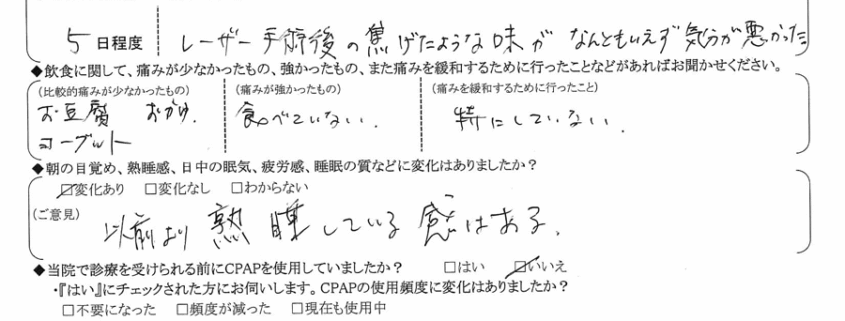 5日程度 レーザー手術後の焦げたような味がなんともいえず気分が悪かった
◆飲食に関して、痛みが少なかったもの、強かったもの、また痛みを緩和するために行ったことなどがあればお聞かせください。
(比較的痛みが少なかったもの) (痛みが強かったもの) (痛みを緩和するために行ったこと)
お豆腐 おかゆ. 食べていない. 特にしていない.
ヨーグルト
◆朝の目覚め、熟睡感、日中の眠気、疲労感、睡眠の質などに変化はありましたか？
☑変化あり □変化なし □わからない
(ご意見)
以前より熟睡している感じはある.
◆当院で診療を受けられる前にCPAPを使用していましたか？ □はい ☑いいえ
・『はい』にチェックされた方にお伺いします。CPAPの使用頻度に変化はありましたか？
□不要になった □頻度が減った □現在も使用中